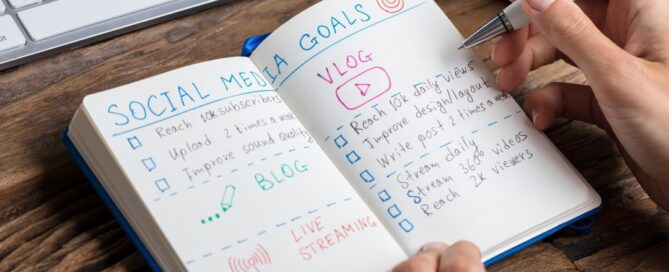 SOCIAL MEDIA GOALS
Reach 10k subscribers
Upload 2 times a week
Improve sound quality
VLOG
BLOG
Reach 10k daily views
Improve design/layout
Write post 2 times a week
LIVE
STREAMING
Stream daily
Stream 360 videos
Reach 2k viewers